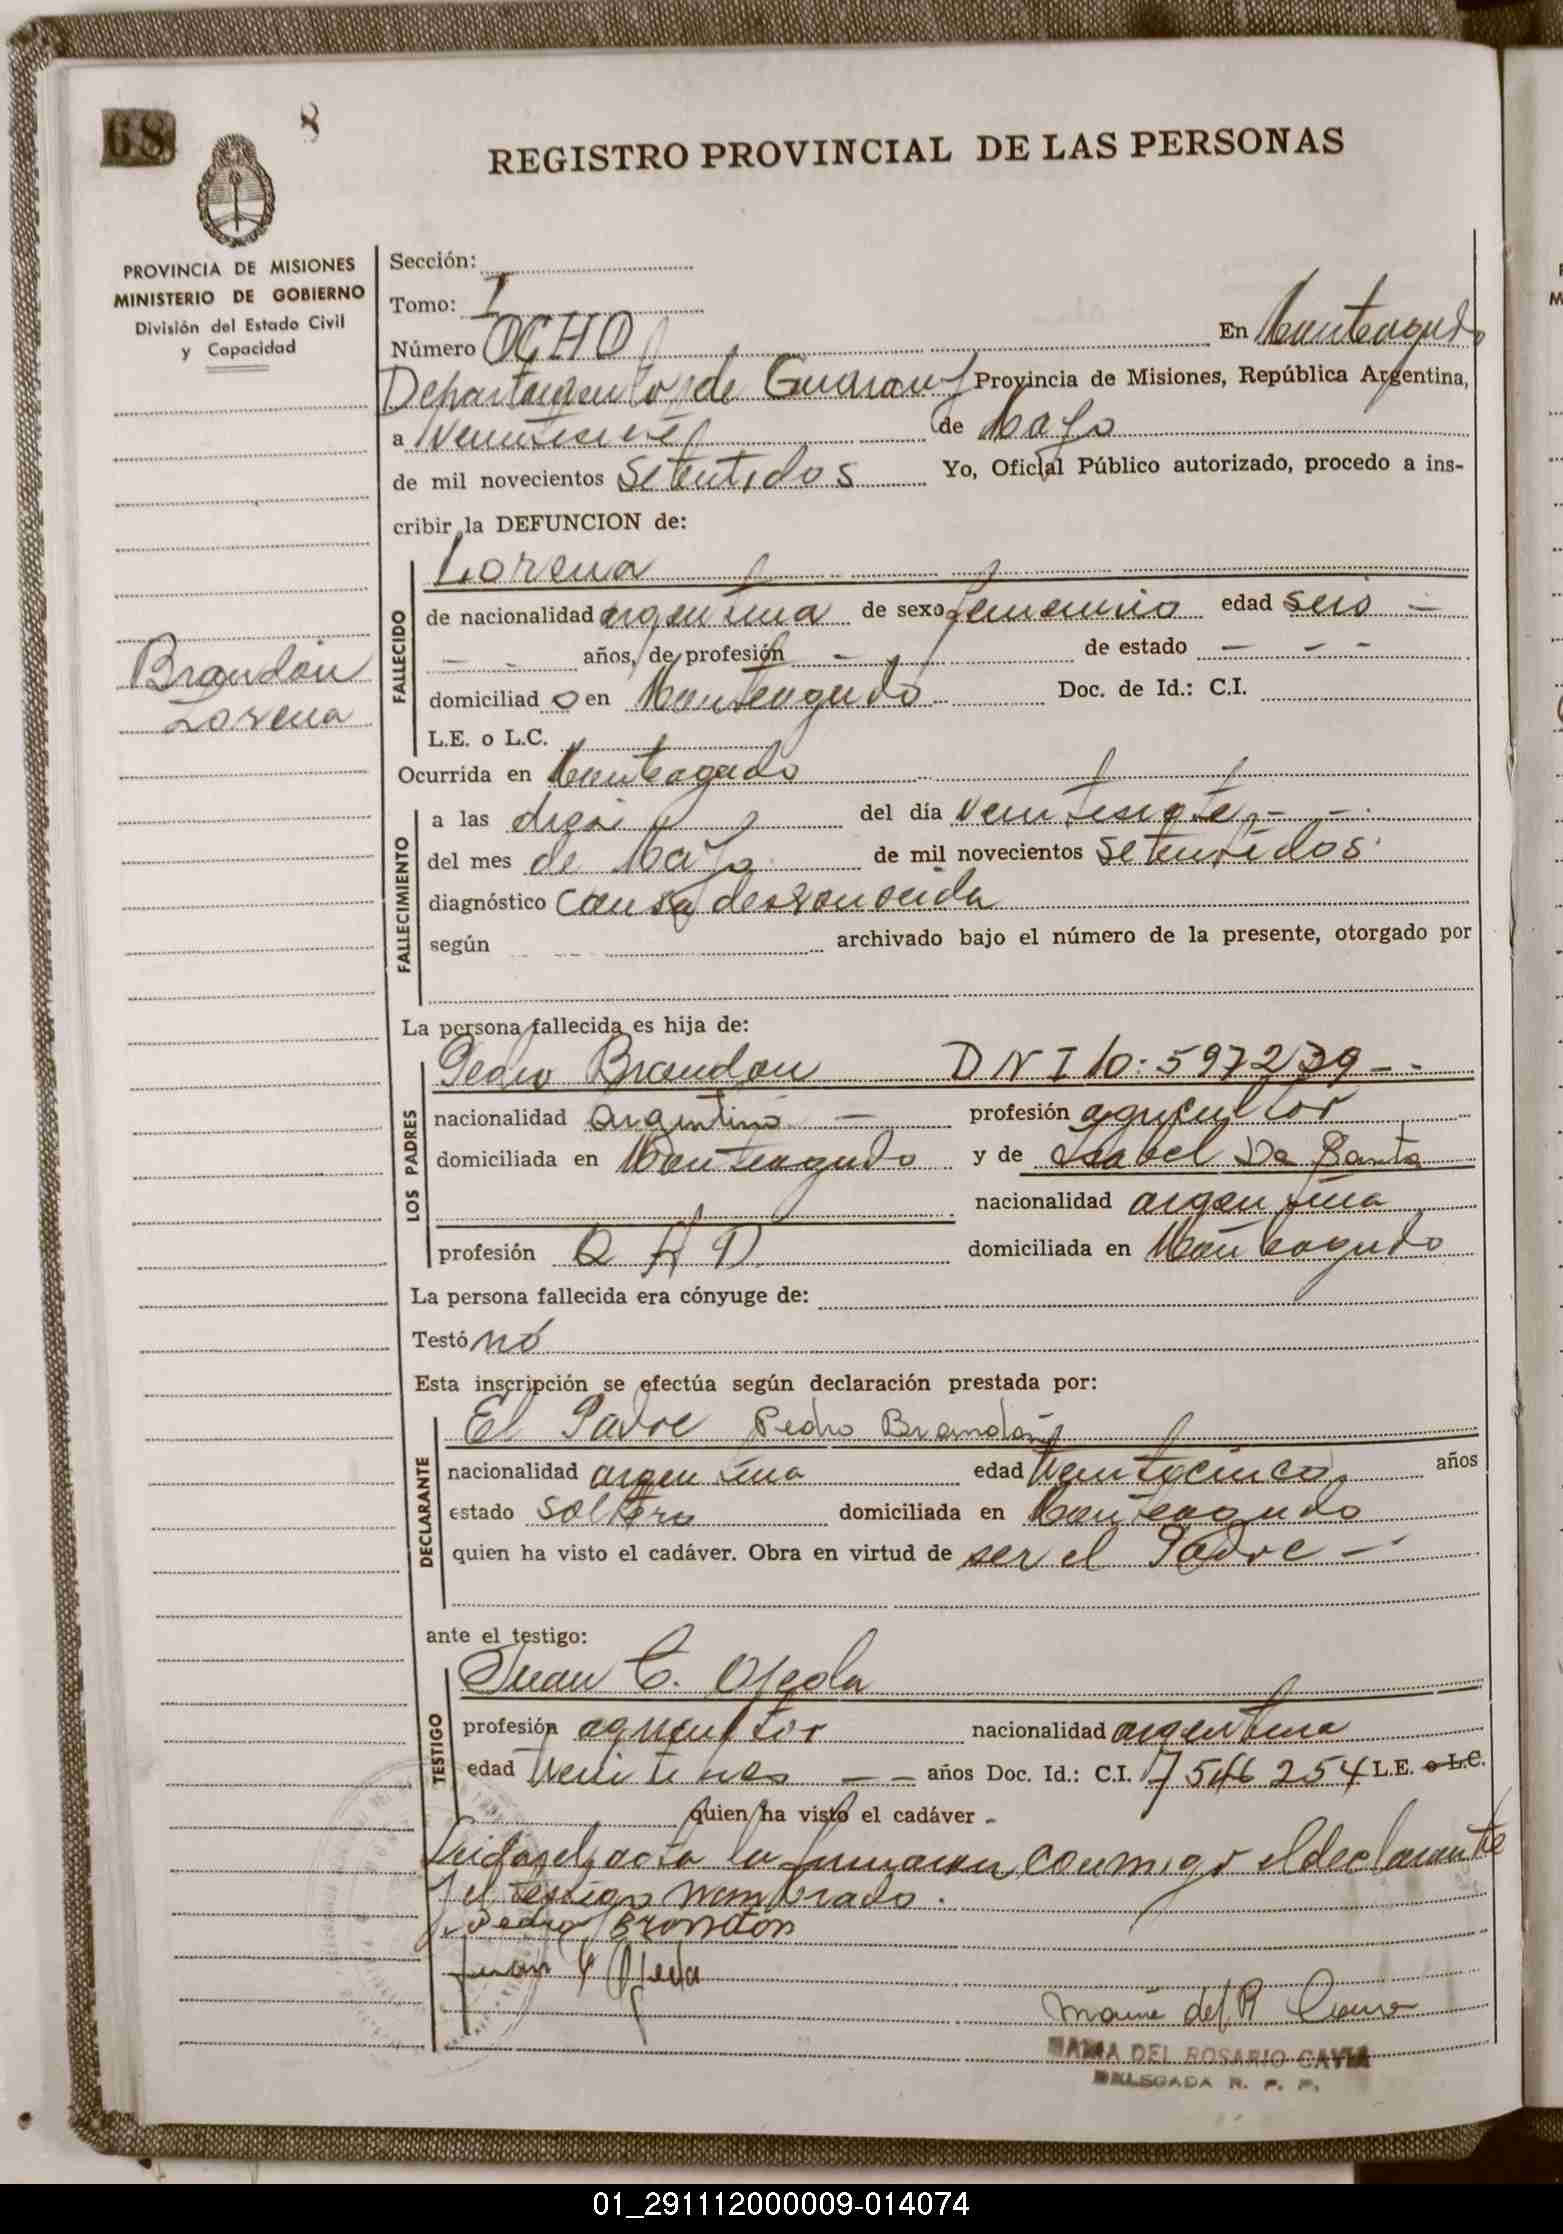 68
8
REGISTRO PROVINCIAL DE LAS PERSONAS
PROVINCIA DE MISIONES
MINISTERIO DE GOBIERNO
División del Estado Civil
y Capacidad
Brandón
Lorena
Sección:
Tomo: I
Número OCHO En Monteagudo
Departamento de Guaraní Provincia de Misiones, República Argentina,
a veintisiete de Mayo
de mil novecientos Setentidos Yo, Oficial Público autorizado, procedo a ins-
cribir la DEFUNCION de:
FALLECIDO
Lorena
de nacionalidad argentina de sexo femenino edad seis –
– – años, de profesión – de estado – – –
domiciliad o en Monteagudo Doc. de Id.: C.I.
L.E. o L.C.
Ocurrida en Monteagudo
FALLECIMIENTO
a las del día veintisiete – –
del mes de Mayo de mil novecientos Setentidos
diagnóstico causa desconocida
según archivado bajo el número de la presente, otorgado por
La persona fallecida es hija de:
LOS PADRES
Pedro Brandon DNI 10: 597239 – –
nacionalidad argentino – profesión agricultor
domiciliada en Monteagudo y de Isabel Da
nacionalidad argentina
profesión Q H D domiciliada en Monteagudo
La persona fallecida era cónyuge de:
Testó nó
Esta inscripción se efectúa según declaración prestada por:
DECLARANTE
El Padre Pedro Brandón
nacionalidad argentina edad veinticinco años
estado soltero domiciliada en Monteagudo
quien ha visto el cadáver. Obra en virtud de ser el Padre –
ante el testigo:
TESTIGO
Juan C. Ojeda
profesión agricultor nacionalidad argentina
edad veintitres – – años Doc. Id.: C.I. 7546254 L.E. o L.C.
quien ha visto el cadáver –
Leida el acta la firman conmigo el declarante
y el testigo nombrado.
Pedro Brondon
Juan C Ojeda
Maria del R Cavia
MARIA DEL ROSARIO CAVIA
DELEGADA R. P. P.
01_291112000009-014074